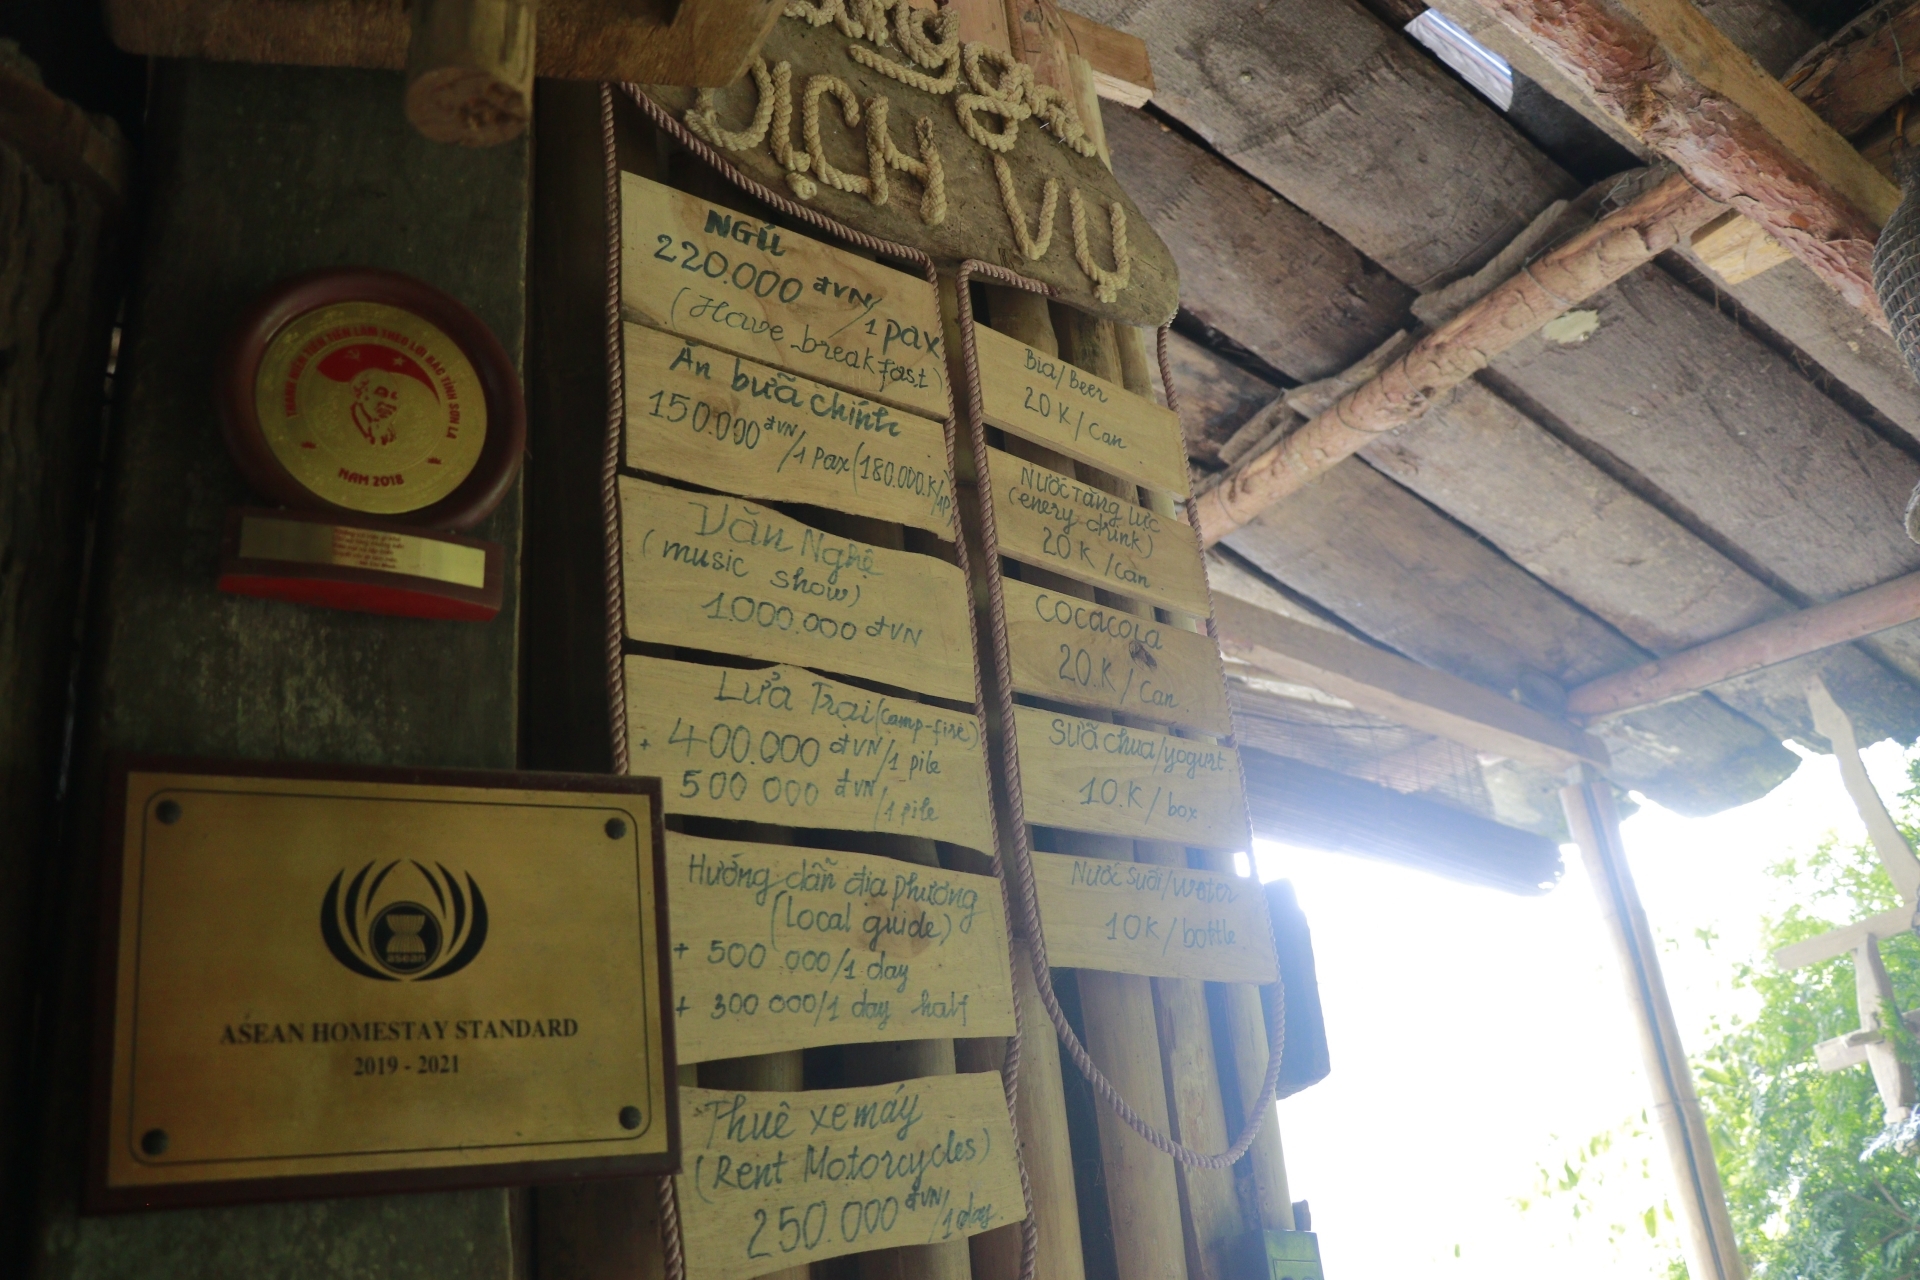 DỊCH VỤ
NGủ
220.000 đVN/1 pax
(Have breakfast)
Ăn bữa chính
150.000 đVN/1 pax (180.000.K/1P)
Văn Nghệ
(music show)
1.000.000 đVN
Lửa Trại (camp-fire)
+ 400.000 đVN/1 pile
500 000 đVN/1 pile
Hướng dẫn địa phương
(local guide)
+ 500 000/1 day
+ 300 000/1 day half
Thuê xe máy
(Rent Motorcycles)
250.000 đVN/1 day
Bia/Beer
20 K/Can
Nước tăng lực
(enery drink)
20 K/can
COCACOLA
20.K/Can
Sữa chua/yogurt
10.K/box
Nước suối/water
10K/bottle
THANH NIÊN TIÊN TIẾN LÀM THEO LỜI BÁC TỈNH SƠN LA
NĂM 2018
asean
ASEAN HOMESTAY STANDARD
2019 - 2021